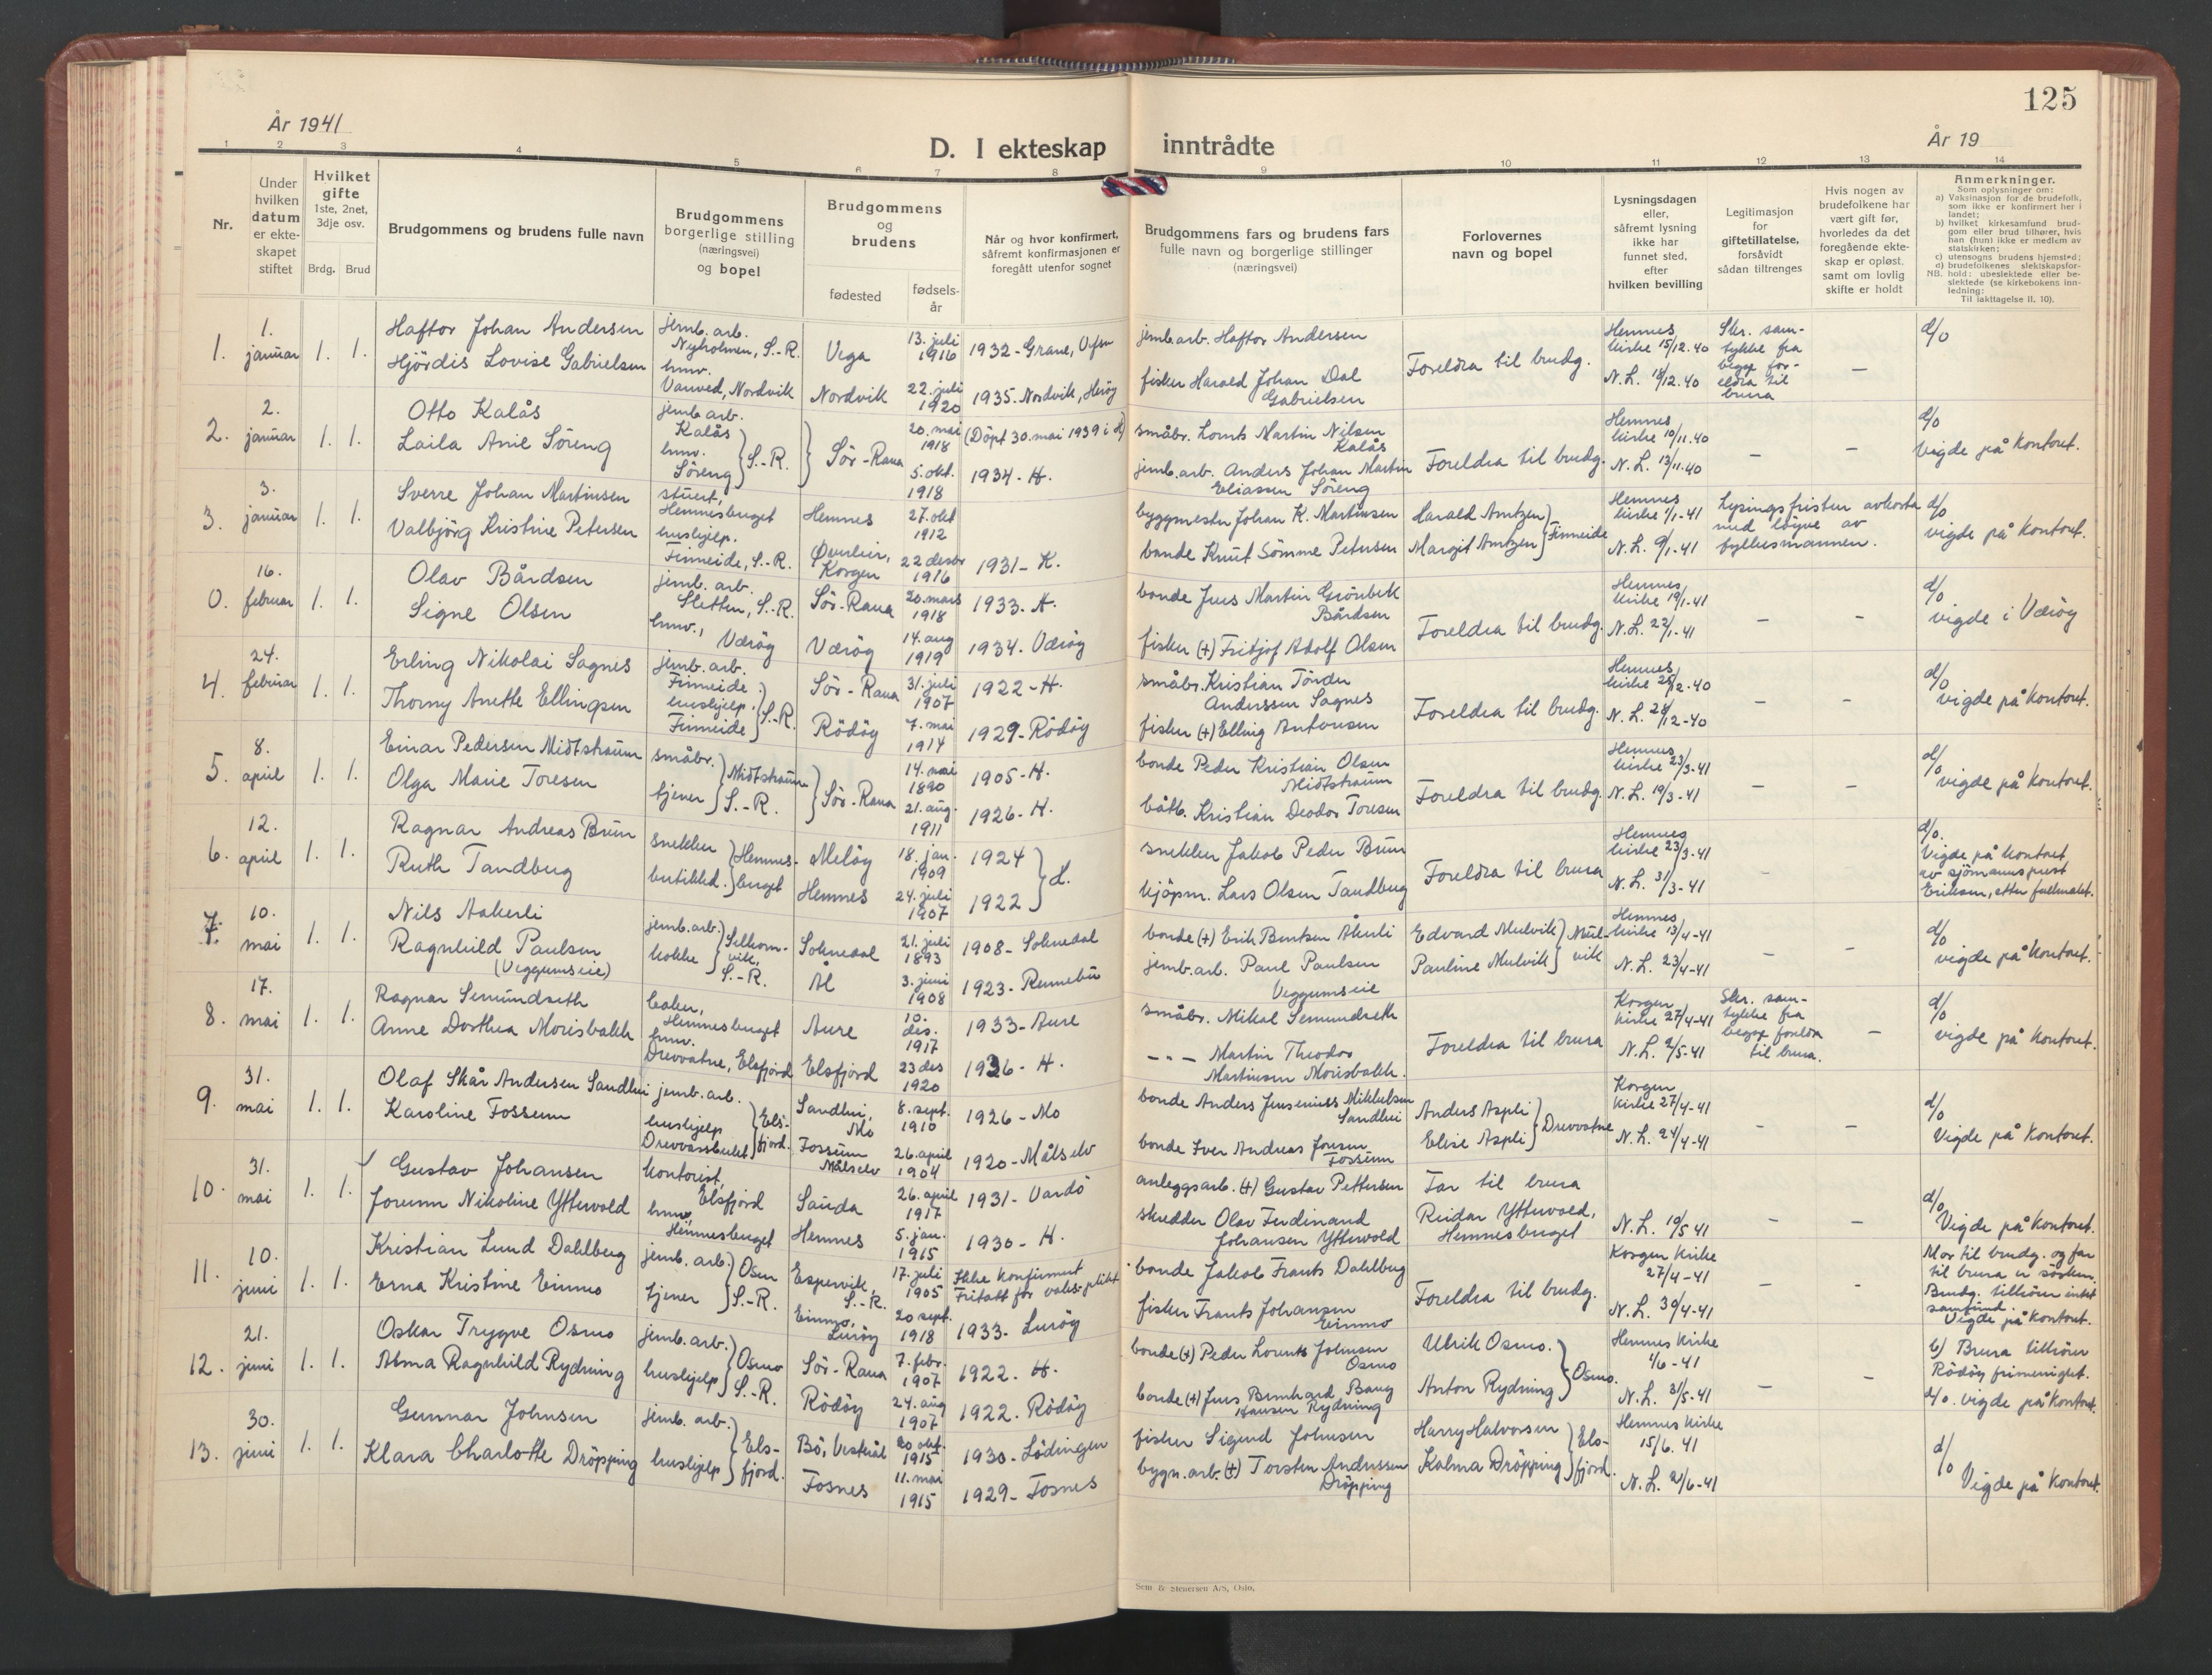 125
År 1941
D. I ekteskap inntrådte
År 19
1 2 3 4 5 6 7 8 9 10 11 12 13 14
Nr.
Under hvilken datum er ekteskapet stiftet
Hvilket gifte
1ste, 2net, 3dje osv.
Brdg. Brud
Brudgommens og brudens fulle navn
Brudgommens borgerlige stilling (næringsvei) og bopel
Brudgommens og brudens
fødested
fødselsår
Når og hvor konfirmert, såfremt konfirmasjonen er foregått utenfor sognet
Brudgommens fars og brudens fars fulle navn og borgerlige stillinger (næringsvei)
Forlovernes navn og bopel
Lysningsdagen eller, såfremt lysning ikke har funnet sted, efter hvilken bevilling
Legitimasjon for giftetillatelse, forsåvidt sådan tiltrenges
Hvis nogen av brudefolkene har vært gift før, hvorledes da det foregående ekteskap er opløst, samt om lovlig skifte er holdt
Anmerkninger.
Som oplysninger om:
a) Vaksinasjon for de brudefolk, som ikke er konfirmert her i landet;
b) hvilket kirkesamfund brudgom eller brud tilhører, hvis han (hun) ikke er medlem av statskirken;
c) utensogns brudens hjemsted;
d) brudefolkenes slektskapsforhold: ubeslektede eller beslektede (se kirkebokens innledning:
NB. Til iakttagelse II. 10).
1. 1. januar 1. 1.
Haftor Johan Andersen
Hjördis Lovise Gabrielsen
jernb. arb. Nyholmen, S.-R.
hmv. Vanved, Nordvik
Vega 13. juli 1916 1932 - Grane, Vefsn
Nordvik 22. juli 1920 1935. Nordvik, Heröy
jernb. arb. Haftor Andersen
fisker Harald Johan Dal Gabrielsen
Foreldra til brudg.
Hemnes kirke 15/12.40
N. L. 18/12.40
Skr. samtykke fra begge foreldra til brura
—
d/o
2. 2. januar 1. 1.
Otto Kalås
Laila Anie Söreng
jernb arb. Kalås
hmv. Söreng } S.-R.
Sör-Rana
20. mai 1918 (Döpt 30. mai 1939 i H)
5. okt. 1918 1934 - H.
småbr. Lornts Martin Nilsen Kalås
jernb. arb. Anders Johan Martin Eliassen Söreng
Foreldra til brudg.
Hemnes kirke 10/11.40
N. L. 13/11.40
— —
d/o
Vigde på kontoret.
3. 3. januar 1. 1.
Sverre Johan Martinsen
Valbjörg Kristine Petersen
stuert, Hemnesberget
hushjelp. Finneide, S.-R.
Hemnes 27. okt 1912
Korgen 22 desbr 1916 1931 - K.
byggmester Johan K. Martinsen
bonde Knut Sömme Petersen
Harald Arntzen
Margit Arntzen } Finneide
Hemnes kirke 1/1-41
N. L. 9/1-41
Lysingsfristen avkorta med löyve av fylkesmannen.
d/o
vigde på kontoret.
0. 16. februar 1. 1.
Olav Bårdsen
Signe Olsen
jernb. arb. Sletten, S.-R.
hmv., Væröy
Sör-Rana 20. mars 1918 1933. H.
Væröy 14. aug 1919 1934. Væröy
bonde Jens Martin Grönbek Bårdsen
fisker (+) Fritjof Adolf Olsen
Foreldra til brudg.
Hemnes kirke 19/1-41
N. L. 22/1-41
— —
d/o
vigde i Væröy
4. 24. februar 1. 1.
Erling Nikolai Sagnes
Thorny Anette Ellingsen
jernb. arb. Finneide
hushjelp, Finneide } S.-R.
Sör-Rana 31. juli 1907 1922 - H.
Rödöy 7. mai 1914 1929 - Rödöy
småbr. Kristian Tönder Anderssen Sagnes
fisker (+) Elling Antonsen
Foreldra til brudg.
Hemnes kirke 26/12-40
N. L. 28/12-40
— —
d/o
vigde på kontoret.
5. 8. april 1. 1.
Einar Pedersen Midtstraum
Olga Marie Toresen
småbr.
tjener } Midtstraum S.-R.
Sör-Rana
14. mai 1890 1905 - H.
21. aug. 1911 1926 - H.
bonde Peder Kristian Olsen Midtstraum
båtb. Kristian Deodor Toresen
Foreldra til brudg.
Hemnes kirke 23/3-41
N. L. 19/3-41
— —
d/o
vigde på kontoret.
6. 12. april 1. 1.
Ragnar Andreas Brun
Ruth Tandberg
snekker
butikkd. } Hemnesberget
Melöy 18. jan. 1909 1924
Hemnes 24. juli 1907 1922 } H.
snekker Jakob Peder Brun
kjöpm. Lars Olsen Tandberg
Foreldra til brura
Hemnes kirke 23/3-41
N. L. 31/3-41
—
d/o.
Vigde på kontoret av sjömannsprest Eriksen, etter fullmakt.
7. 10. mai 1. 1.
Nils Aakerli
Ragnhild Paulsen (Veggumseie)
jernb. arb.
kokke
S.-R.
Soknedal 21. juli 1893 1908 - Soknedal
Ål 3. juni 1908 1923 - Rennebu
bonde (+) Erik Bentsen Åkerli
jernb. arb. Paul Paulsen Veggumseie
Edvard Mulvik
Pauline Mulvik } Mulvik
Hemnes kirke 13/4-41
N. L. 23/4-41
— —
d/o
vigde på kontoret.
8. 17. mai 1. 1.
Ragnar Semundseth
Anne Dorthea Morisbakk
baker, Hemnesberget
hmv. Drevvatne, Elsfjord
Aure 10. des. 1917 1933 - Aure
Elsfjord 23 des 1920 1936 - H.
småbr. Mikal Semundseth
- - - Martin Theodor Martinsen Morisbakk.
Foreldra til brura
Korgen kirke 27/4-41
N. L. 2/5-41
Skr. samtykke fra begge foreldra til brura.
—
d/o
vigde på kontoret.
9. 31. mai 1. 1.
Olaf Skår Andersen Sandhei
Karoline Fossum
jernb. arb.
hushjelp } Elsfjord.
Sandhei, Mo 8. sept. 1910 1926 - Mo
Fossum Målselv 26. april 1904 1920 - Målselv
bonde Anders Jenseniuss Mikkelsen Sandhei
bonde Iver Andreas Jonsen Fossum
Anders Aspli
Elise Aspli } Drevvatne
Korgen kirke 27/4-41
N. L. 24/4-41
— —
d/o
Vigde på kontoret.
10. 31. mai 1. 1.
Gustav Johansen
Jorunn Nikoline Yttervold
kontorist, Elsfjord
hmv, Hemnesberget
Sauda 26. april 1917 1931 - Vardö
Hemnes 5. jan. 1915 1930 - H.
anleggsarb. (+) Gustav Pettersen
skredder Olav Ferdinand Johansen Yttervold
Far til brura
Reidar Yttervold, Hemnesberget
N. L. 19/5 41
— —
d/o
Vigde på kontoret.
11. 10. juni 1. 1.
Kristian Lund Dahlberg
Erna Kristine Einmo
jernb. arb.
tjener } Osen S.-R.
Espervik, S.-R. 17. juli 1905 Ikke konfirmert
Einmo, Luröy 20 sept. 1918 1933 - Luröy
bonde Jakob Frants Dahlberg
fisker Frants Johansen Einmo
Foreldra til brudg.
Korgen kirke 27/4-41
N. L. 30/4-41
— -
Mor til brudg. og far til brura er sösken. Brudg. tilhörer intet samfund. Vigde på kontoret.
12. 21. juni 1. 1.
Oskar Trygve Osmo
Alma Ragnhild Rydning
jernb. arb.
hushjelp } Osmo S.-R.
Sör-Rana 7. febr. 1907 1922. H.
Rödöy 24. aug 1907 1922. Rödöy
bonde (+) Peder Lornts Johnsen Osmo
bonde (+) Jens Bernhard Bang Hansen Rydning
Ulrik Osmo.
Anton Rydning } Osmo.
Hemnes kirke 1/6-41
N. L. 31/5-41
— —
b/ Brura tilhörer Rödöy frimenighet.
d/o. vigde på kontoret.
13. 30. juni 1. 1.
Gunnar Johnsen
Klara Charlotte Dröpping
jernb. arb.
hushjelp } Elsfjord.
Bö, Vesterål 20 okt. 1915 1930 - Lödingen
Fosnes 11. mai 1915 1929 - Fosnes
fisker Sigurd Johnsen
bygn. arb. (+) Torsten Anderssen Dröpping
Harry Halvorsen
Kalma Dröpping } Elsfjord.
Hemnes kirke 15/6. 41
N. L. 21/6-41
d/o
Vigde på kontoret.
Sem & Stenersen A/S, Oslo.